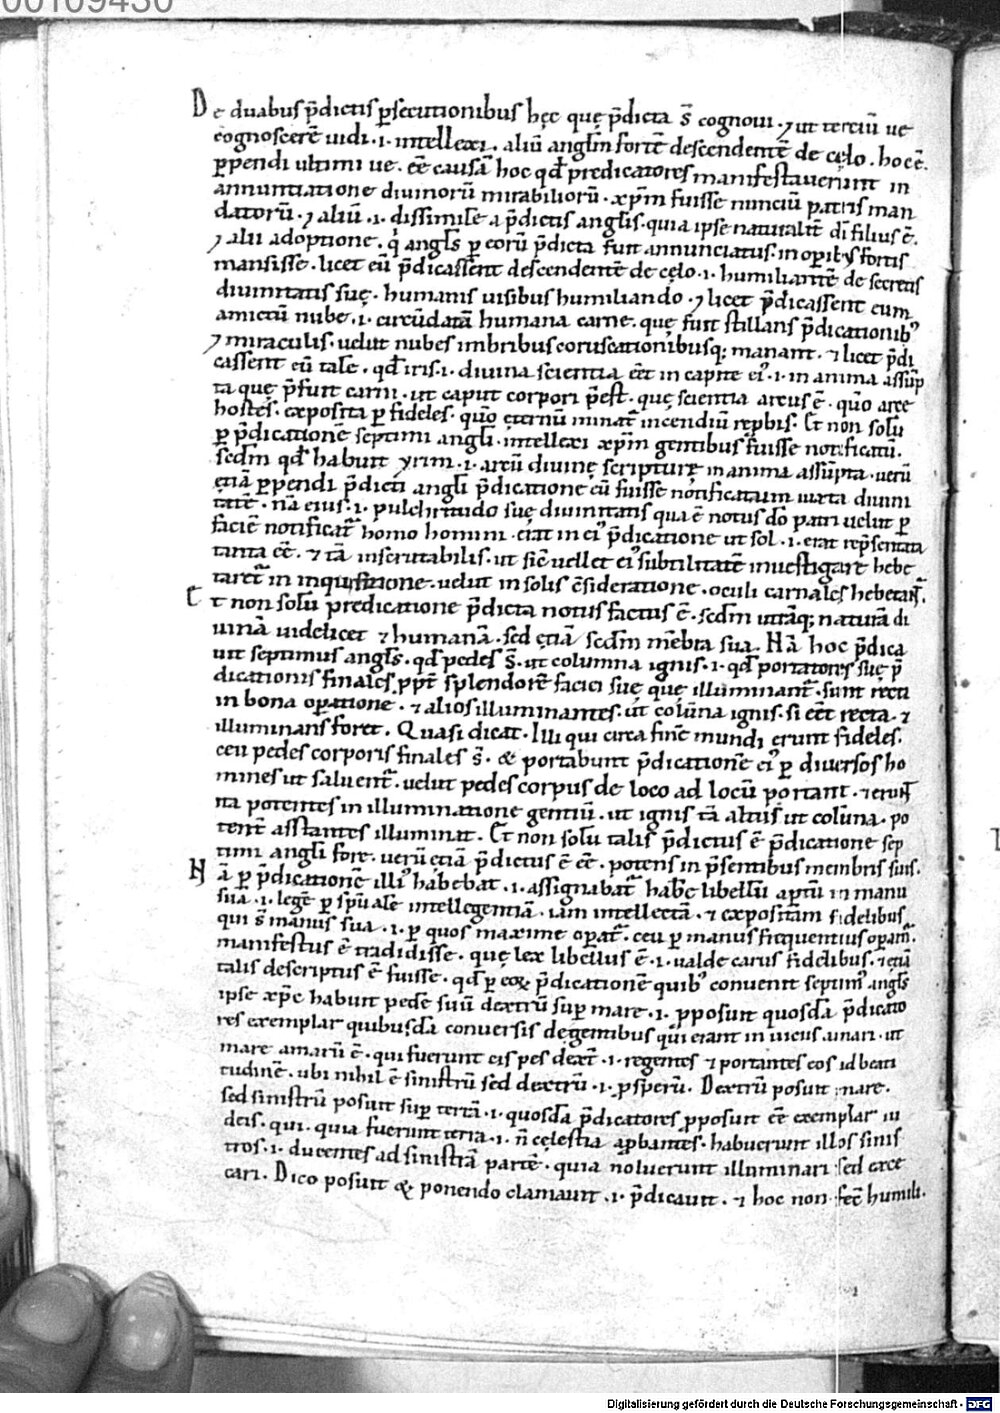 00109430
De duabus p̄dictis ꝑsecutionibus hęc quę p̄dicta s̄ cognoui · ⁊ ut terciū ue
cognoscerē uidi · i · intellexi · aliū angl̄m fortē descendentē de cęlo · hoc ē ·
ꝑpendi ultimi ue · eē causā hoc qđ predicatores manifestauerunt in
annuntiatione diuinorū mirabiliorū · xp̄m fuisse nunciū patris man
datorū · ⁊ aliū · i · dissimilē a p̄dictis angl̄is · quia ipse naturalit̄ di filius ē ·
⁊ alii adoptione · q angl̄s ꝑ eorū p̄dicta fuit annunciatus · in oꝑibus fortis
mansisse · licet eū p̄dicassent descendentē de cęlo · i · humiliantē de secretis
diuinitatis suę · humanis uisibus humiliando · ⁊ licet p̄dicassent eum
amictū nube · i · circūdatā humana carne · quę fuit stillans p̄dicationibꝰ
⁊ miraculis · uelut nubes imbribus coruscationibusq; manant · ⁊ licet p̄di
cassent eū tale · qđ iris · i · diuina scientia eēt in capite eiꝰ · i · in anima assūp
ta quę p̄fuit carni · ut caput corpori p̄est · quę scientia arcus ē · quo arce
hostes · exposita ꝑ fideles · quō eternū minat̄ incendiū rep̄bis · Et non solū
ꝑ p̄dicationē septimi angl̄i · intellexi xp̄m gentibus fuisse notificatū ·
secdm qđ habuit yrim · i · arcū diuinę scripturę in anima assūpta · uerū
etiā ꝑpendi p̄dicti angl̄i p̄dicatione eū fuisse notificatum iuxta diuini
tatē · nā eius · i · pulchritudo suę diuinitatis qua ē notus dō patri uelut ꝑ
faciē notificat̄ homo homini · erat in eiꝰ p̄dicatione ut sol · i · erat rep̄sentata
tanta eē · ⁊ tā inscrutabilis · ut sic̄ uellet eiꝰ subtilitatē inuestigare hebe
taret̄ in inquisitione · uelut in solis c̄sideratione · oculi carnales hebetant̄ ·
Et non solū predicatione p̄dicta notus factus ē · secdm utrāq; naturā di
uinā uidelicet ⁊ humanā · sed etiā secdm mēbra sua · Nā hoc p̄dica
uit septimus angl̄s · qđ pedes s̄ · ut columna ignis · i · qđ portatores suę p̄
dicationis finales ꝓpt̄ splendorē faciei suę quę illuminant̄ · sunt recti
in bona oꝑatione · ⁊ alios illuminantes · ut colūna ignis · si eēt recta · ⁊
illuminans foret · Quasi dicat · Illi qui circa finē mundi erunt fideles ·
ceu pedes corporis finales s̄ · & portabunt p̄dicationē eiꝰ ꝑ diuersos ho
mines ut saluent̄ · uelut pedes corpus de loco ad locū portant · ⁊ erunt
ita potentes in illuminatione gentiū · ut ignis tā altus ut colūna · po
tent̄ asstantes illuminat · Et non solū talis p̄dictus ē p̄dicatione sep
timi angl̄i fore · uerū etiā p̄dictus ē eē · potens in p̄sentibus membris suis ·
Nā ꝑ p̄dicationē illiꝰ habebat · i · assignabat̄ habe libellū aptū in manu
sua · i · legē ꝑ sp̄ualē intellegentiā · iam intellectā · ⁊ expositam fidelibus
qui s̄ manus sua · i · ꝑ quos maxime oꝑat̄ · ceu ꝑ manus frequentius oꝑam̄ ·
manifestus ē tradidisse · quę lex libellus ē · i · ualde carus fidelibus · ⁊ etiā
talis descriptus ē fuisse · qđ ꝑ eoꝝ p̄dicationē quibꝰ conuenit septimꝰ angl̄s
ipse xp̄c habuit pedē suū dextrū suꝑ mare · i · ꝓposuit quosdā p̄dicato
res exemplar quibusdā conuersis de gentibus qui erant in uiciis amari · ut
mare amarū ē · qui fuerunt eis pes dext̄ · i · regentes ⁊ portantes eos id beati
tudinē · ubi nihil ē sinistrū sed dextrū · i · ꝓsperū · Dextrū posuit mare ·
sed sinistrū posuit suꝑ terrā · i · quosdā p̄dicatores ꝓposuit eē exemplar iu
deis · qui · quia fuerunt terra · i · n̄ cęlestia aꝓbantes · habuerunt illos sinis
tros · i · ducentes ad sinistrā partē · quia noluerunt illuminari sed exce
cari · Dico posuit & ponendo clamauit · i · p̄dicauit · ⁊ hoc non fec̄ humili ·
Digitalisierung gefördert durch die Deutsche Forschungsgemeinschaft - DFG